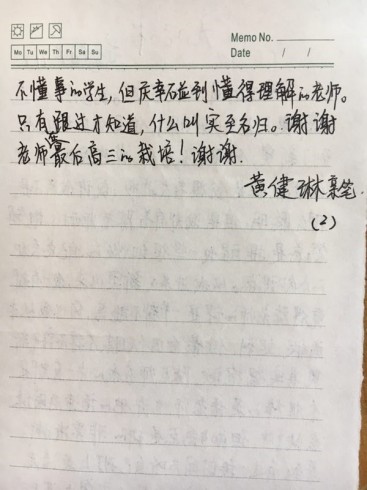 Memo No.
Mo Tu We Th Fr Sa Su
Date / /
不懂事的学生，但庆幸碰到懂得理解的老师。
只有跟过才知道，什么叫实至名归。谢谢
老师最后高三的栽培！谢谢.
黄健琳亲笔.
(2)